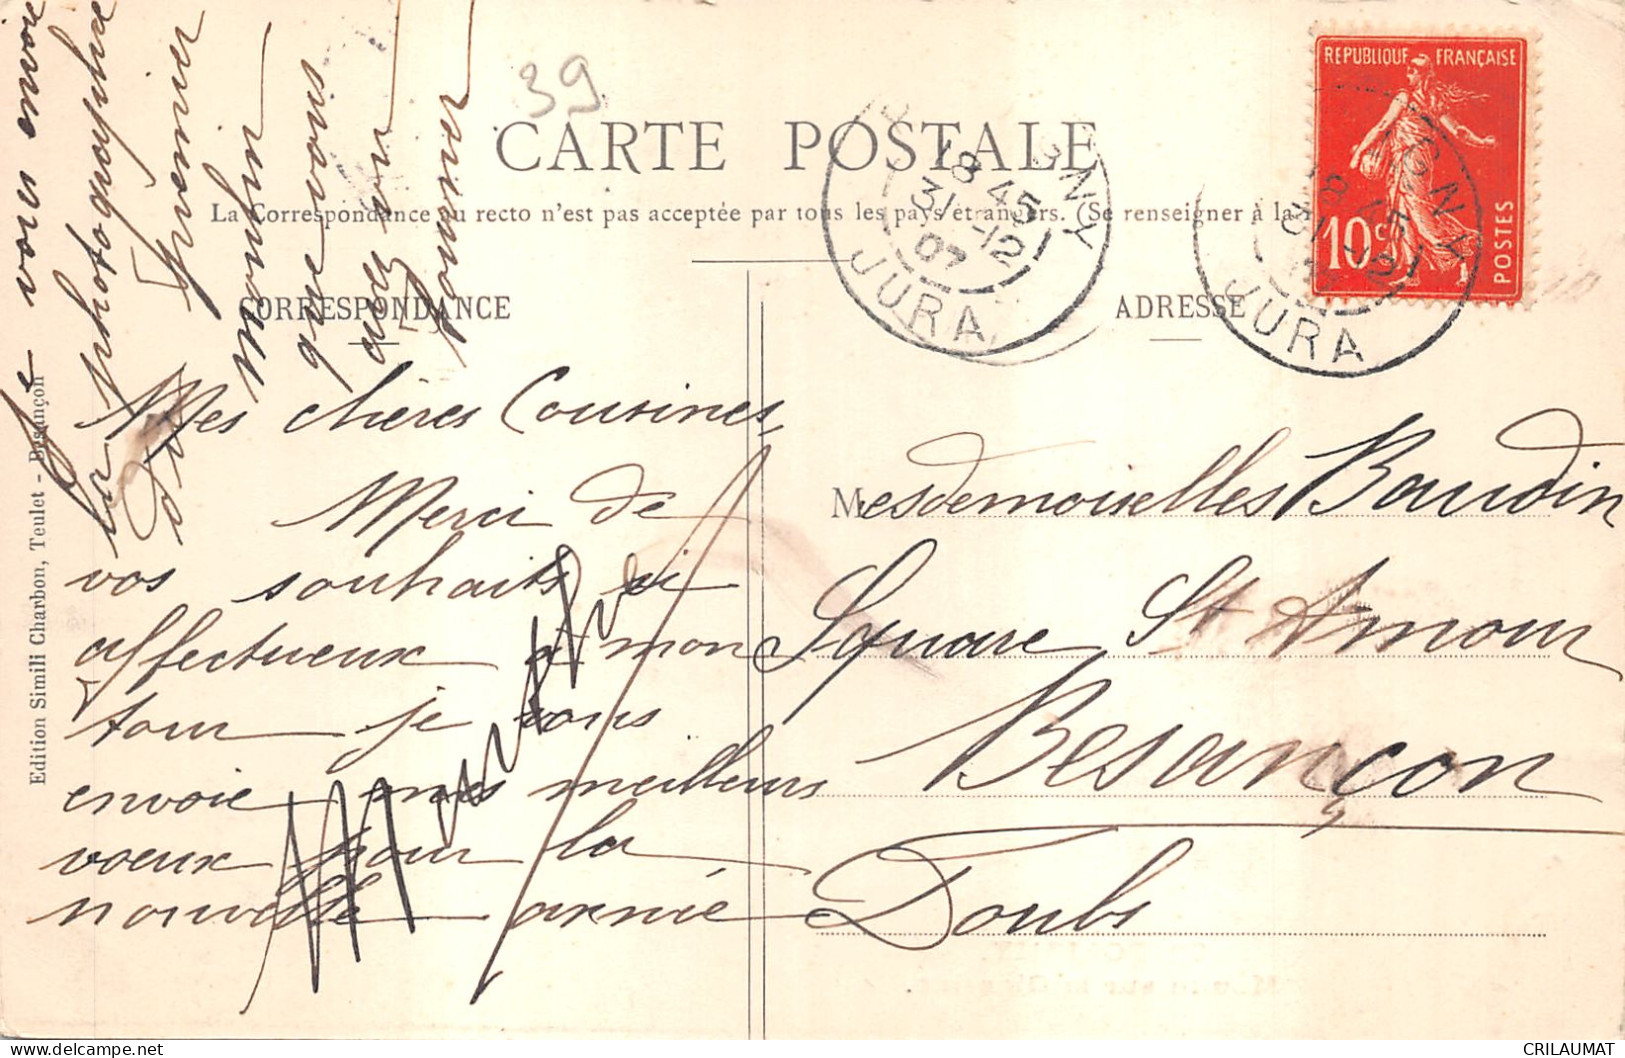 39
CARTE POSTALE
La Correspondance au recto n'est pas acceptée par tous les pays étrangers. (Se renseigner à la
CORRESPONDANCE
ADRESSE
REPUBLIQUE FRANÇAISE
10c
POSTES
18 45
31-12
07
JURA
18 45
31-12
JURA
Mes chères Cousines,
Merci de
vos souhaits si
affectueux et mon
tour je vous
envoie mes meilleurs
voeux pour la
nouvelle année
Je vous envoie
la photographie
premier
moulin
que vous
avez vu
Mesdemoiselles Baudin
Square St Amour
Besançon
Doubs
Edition Simili Charbon, Teulet - Besançon
CRILAUMAT